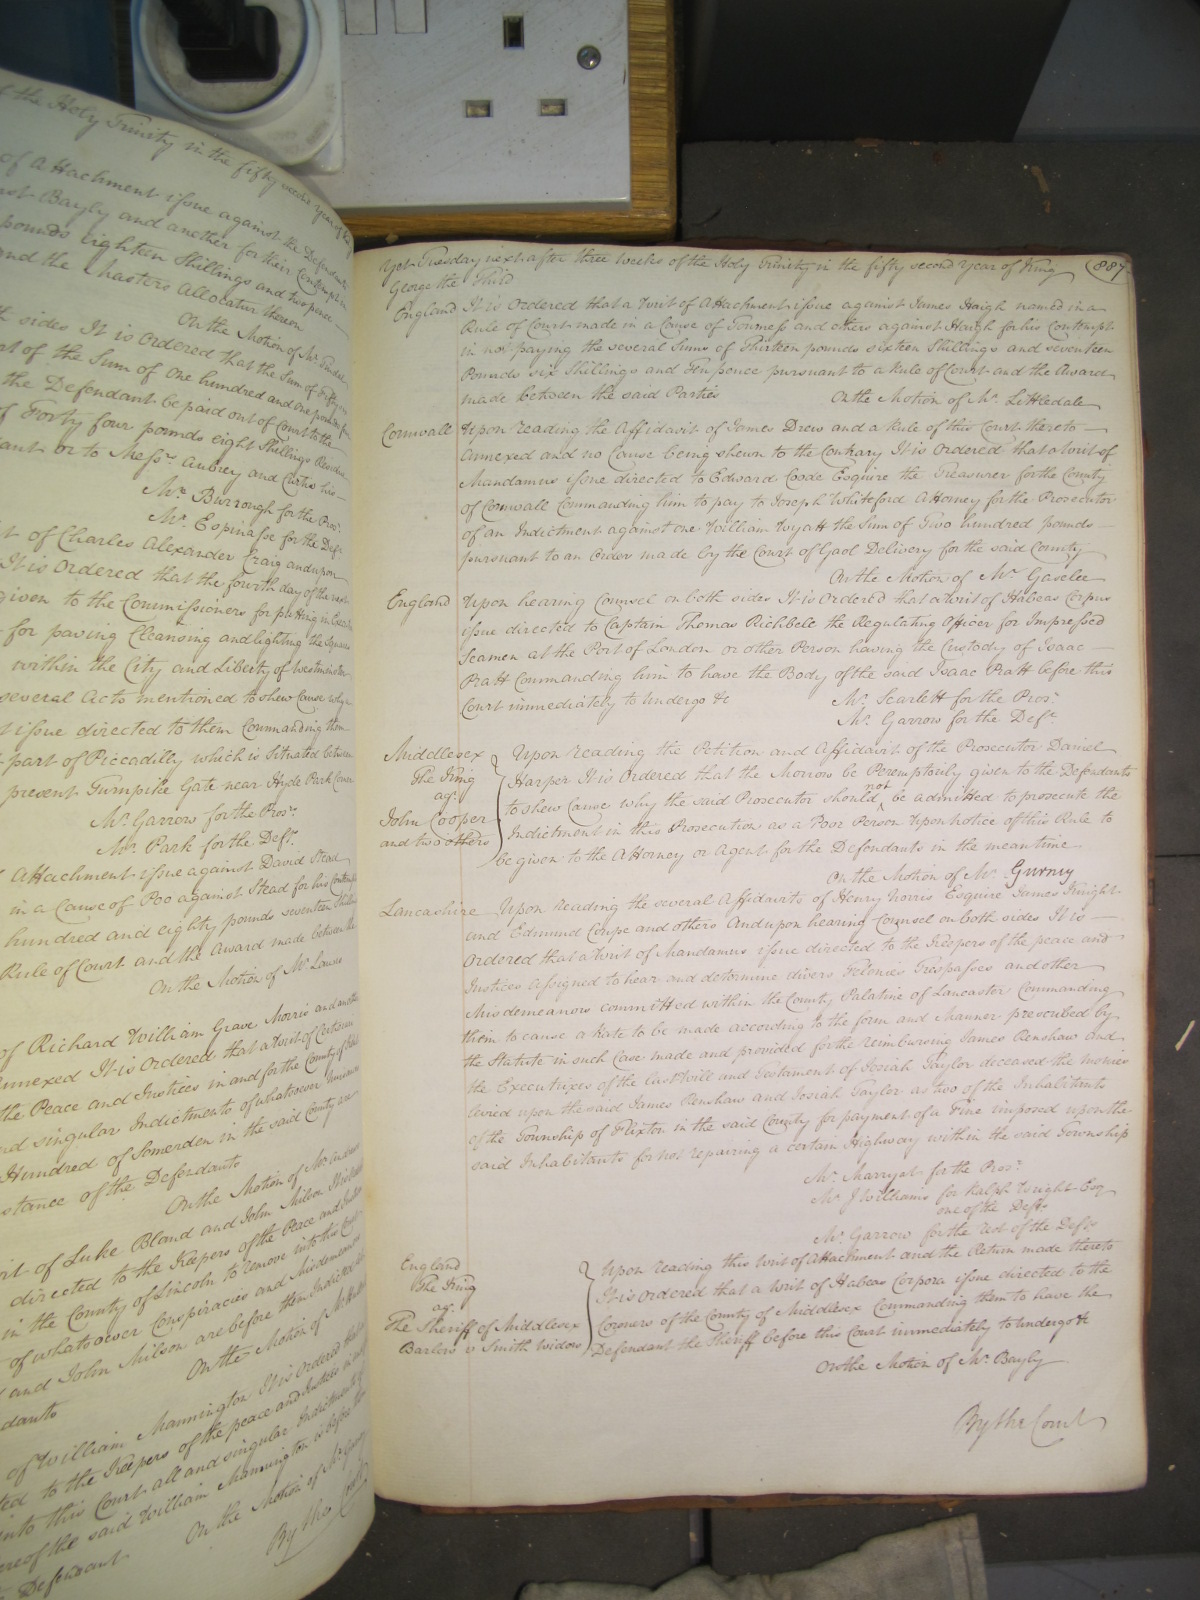 t the Holy Trinity in the fifty second year of King
of Attachment issue against the Defendants
Bayly and another for their Contempt in
pounds eighteen Shillings and two pence
and the Masters Allocatur thereon
On the Motion of Mr.
sides It is Ordered that the Sum of
of the Sum of One hundred and one pounds
the Defendant be paid out of Court to the
Forty four pounds eight Shillings Residue
or to Messrs. Aubrey and Curtis his
Mr. Burrough for the Prosr.
Mr. Espinasse for the Deft.
of Charles Alexander Craig and upon
It is Ordered that the fourth day of the next
given to the Commissioners for putting in Execution
for paving Cleansing and lighting the Squares
within the City and Liberty of Westminster
several Acts mentioned to shew Cause why a
issue directed to them Commanding them
part of Piccadilly which is Situated between
present Turnpike Gate near Hyde Park Corner
Mr. Garrow for the Prosr.
Mr. Park for the Deft.
Attachment issue against David Stead
in a Cause of Poo against Stead for his Contempt
hundred and eighty pounds seventeen Shillings
Rule of Court and the Award made between the
On the Motion of Mr. Lawes
of Richard William Grave Morris and another
annexed It is Ordered that a Writ of Certiorari
the Peace and Justices in and for the County of
and singular Indictments of whatsoever
Hundred of Somerden in the said County are
of the Defendants
On the Motion of Mr.
of Luke Bland and John Milson
directed to the Keepers of the Peace and Justices
in the County of Lincoln to remove into this Court
of whatsoever Conspiracies and Misdemeanors
and John Milson are before them Indicted
On the Motion of Mr.
of William Mannington It is Ordered that a
to the Keepers of the peace and Justices in and
into this Court all and singular Indictments of
whereof the said William Mannington is before
Defendant On the Motion of Mr.
By the Court
Yet Tuesday next after three weeks of the Holy Trinity in the fifty second Year of King 887
George the Third
England It is Ordered that a Writ of Attachment issue against James Haigh named in a
Rule of Court made in a Cause of and others against Haigh for his Contempt
in not paying the several Sums of Thirteen pounds sixteen Shillings and seventeen
Pounds six Shillings and Tenpence pursuant to a Rule of Court and the Award
made between the said Parties On the Motion of Mr. Littledale
Cornwall Upon reading the Affidavit of James Drew and a Rule of this Court thereto
Annexed and no Cause being shewn to the Contrary It is Ordered that a Writ of
Mandamus issue directed to Edward Coode Esquire the Treasurer for the County
of Cornwall Commanding him to pay to Joseph Whiteford Attorney for the Prosecutor
of an Indictment against one William Wyatt the Sum of Two hundred pounds
pursuant to an Order made by the Court of Gaol Delivery for the said County
On the Motion of Mr. Gaselee
England Upon hearing Counsel on both sides It is Ordered that a Writ of Habeas Corpus
issue directed to Captain Thomas Richbell the Regulating Officer for Impressed
Seamen at the Port of London or other Person having the Custody of Isaac
Pratt Commanding him to have the Body of the said Isaac Pratt before this
Court immediately to Undergo &c Mr. Scarlett for the Prosr.
Mr. Garrow for the Deft.
Middlesex Upon reading the Petition and Affidavit of the Prosecutor Daniel
The King Harper It is Ordered that the Morrow be Peremptorily given to the Defendants
agt. to shew Cause why the said Prosecutor should not be admitted to prosecute the
John Cooper Indictment in this Prosecution as a Poor Person Upon Notice of this Rule to
and two others be given to the Attorney or Agent for the Defendants in the meantime
On the Motion of Mr. Gurney
Lancashire Upon reading the several Affidavits of Henry Norris Esquire James Knight
and Edmund and others And upon hearing Counsel on both sides It is
Ordered that a Writ of Mandamus issue directed to the Keepers of the peace and
Justices Assigned to hear and determine divers Felonies Trespasses and other
Misdemeanors committed within the County Palatine of Lancaster Commanding
them to cause a Rate to be made according to the form and Manner prescribed by
the Statute in such Case made and provided for the reimbursing James Renshaw and
the Executrixes of the last Will and Testament of Josiah Taylor deceased the monies
levied upon the said James Renshaw and Josiah Taylor as two of the Inhabitants
of the Township of Flixton in the said County for payment of a Fine imposed upon the
said Inhabitants for not repairing a certain Highway within the said Township
Mr. Marryat for the Prosr.
Mr. J Williams for Ralph Wright Esq
one of the Defts
Mr. Garrow for the rest of the Defts
England Upon reading this Writ of Attachment and the Return made thereto
The King It is Ordered that a Writ of Habeas Corpora issue directed to the
agt. Coroners of the County of Middlesex Commanding them to have the
The Sheriff of Middlesex Defendant the Sheriff before this Court immediately to Undergo &c
Barlow v Smith Widow
On the Motion of Mr. Bayly
By the Court